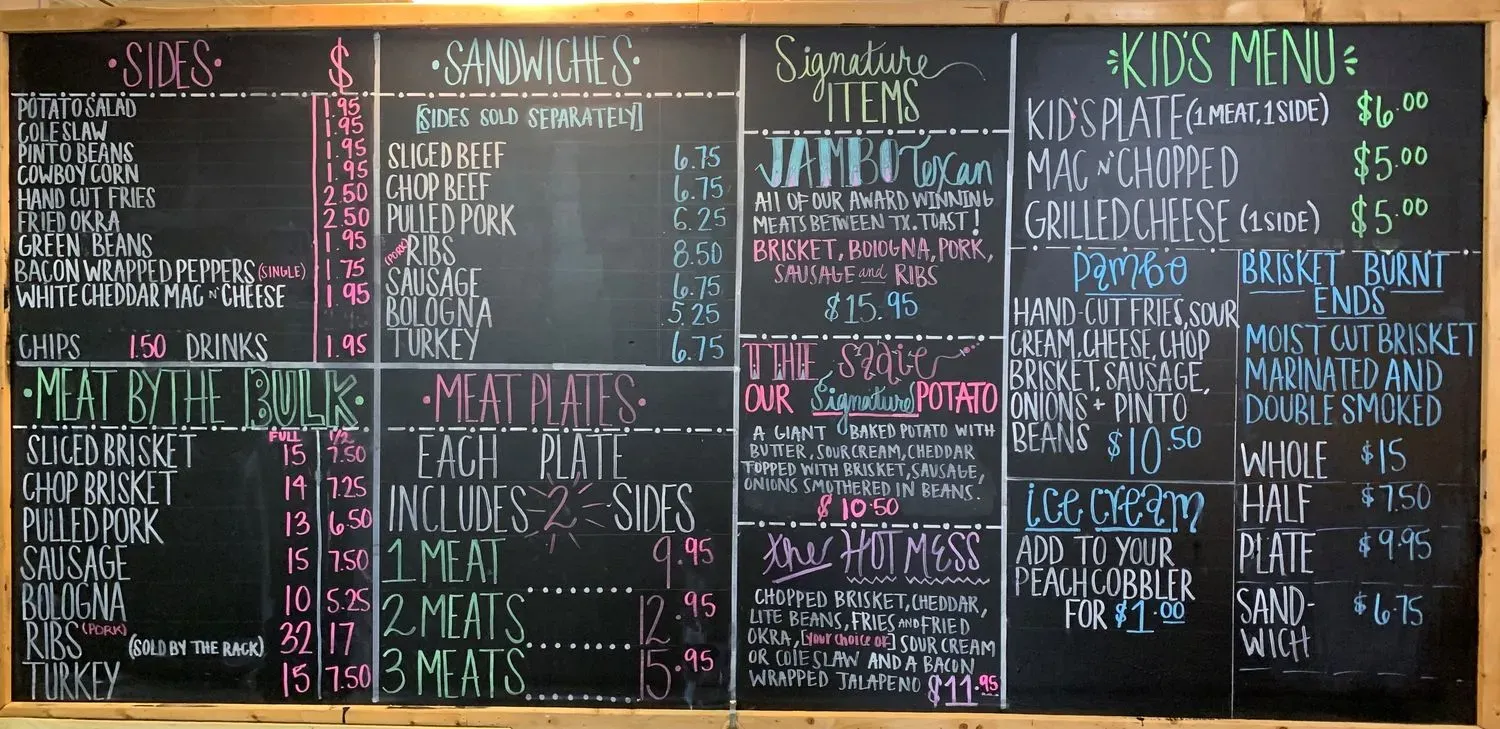 •SIDES• $
POTATO SALAD 1.95
COLE SLAW 1.95
PINTO BEANS 1.95
COWBOY CORN 1.95
HAND CUT FRIES 2.50
FRIED OKRA 2.50
GREEN BEANS 1.95
BACON WRAPPED PEPPERS (SINGLE) 1.75
WHITE CHEDDAR MAC N' CHEESE 1.95
CHIPS 1.50 DRINKS 1.95
•MEAT BY THE BULK•
FULL 1/2
SLICED BRISKET 15 7.50
CHOP BRISKET 14 7.25
PULLED PORK 13 6.50
SAUSAGE 15 7.50
BOLOGNA 10 5.25
RIBS (PORK) (SOLD BY THE RACK) 32 17
TURKEY 15 7.50
•SANDWICHES•
[SIDES SOLD SEPARATELY]
SLICED BEEF 6.75
CHOP BEEF 6.75
PULLED PORK 6.25
(PORK) RIBS 8.50
SAUSAGE 6.75
BOLOGNA 5.25
TURKEY 6.75
•MEAT PLATES•
EACH PLATE
INCLUDES 2 SIDES
1 MEAT 9.95
2 MEATS 12.95
3 MEATS 15.95
Signature
ITEMS
JAMBO Texan
All OF OUR AWARD WINNING
MEATS BETWEEN TX. TOAST!
BRISKET, BOLOGNA, PORK,
SAUSAGE and RIBS
$15.95
THE
OUR Signature POTATO
A GIANT BAKED POTATO WITH
BUTTER, SOUR CREAM, CHEDDAR
TOPPED WITH BRISKET, SAUSAGE,
ONIONS SMOTHERED IN BEANS.
$10.50
the HOT MESS
CHOPPED BRISKET, CHEDDAR,
LITE BEANS, FRIES AND FRIED
OKRA, [your choice of] SOUR CREAM
OR COLE SLAW AND A BACON
WRAPPED JALAPENO $11.95
KID'S MENU
KID'S PLATE (1 MEAT, 1 SIDE) $6.00
MAC N' CHOPPED $5.00
GRILLED CHEESE (1 SIDE) $5.00
Jambo
HAND-CUT FRIES, SOUR
CREAM, CHEESE, CHOP
BRISKET, SAUSAGE,
ONIONS + PINTO
BEANS $10.50
ice cream
ADD TO YOUR
PEACH COBBLER
FOR $1.00
BRISKET BURNT
ENDS
MOIST CUT BRISKET
MARINATED AND
DOUBLE SMOKED
WHOLE $15
HALF $7.50
PLATE $9.95
SAND- $6.75
WICH